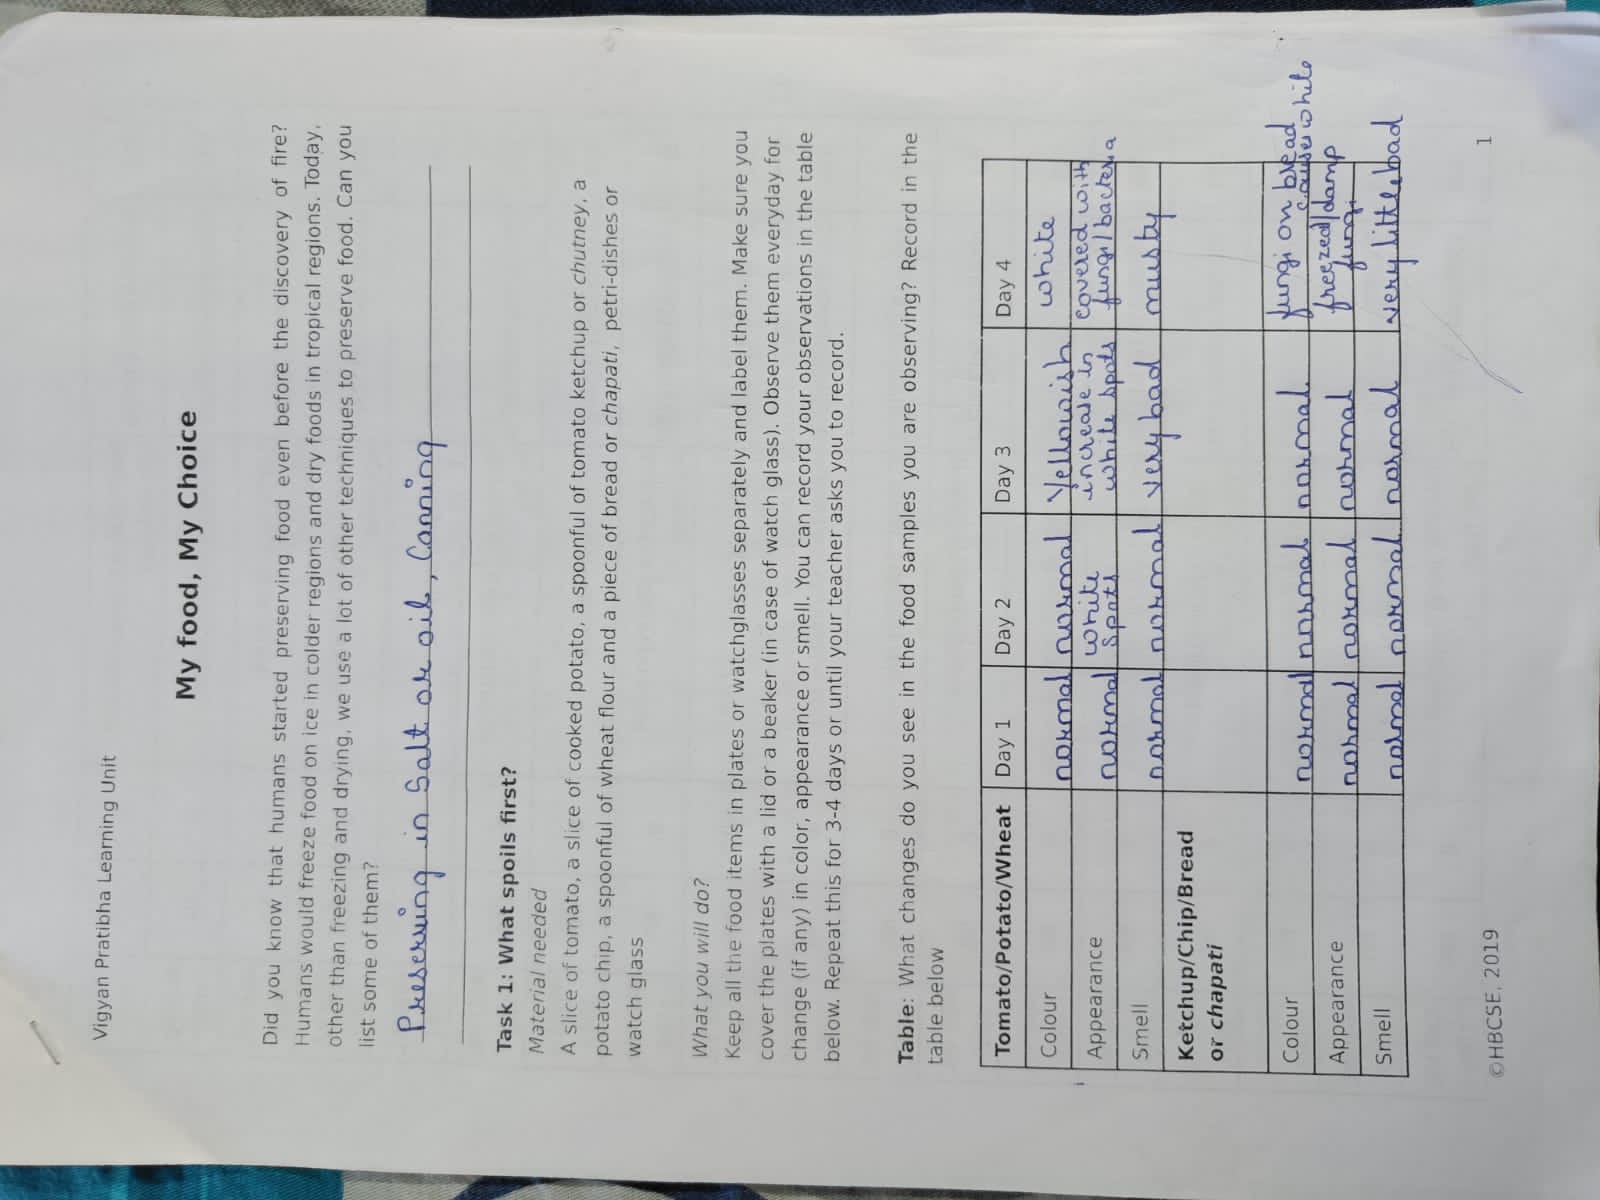 Vigyan Pratibha Learning Unit
My food, My Choice
Did you know that humans started preserving food even before the discovery of fire?
Humans would freeze food on ice in colder regions and dry foods in tropical regions. Today,
other than freezing and drying, we use a lot of other techniques to preserve food. Can you
list some of them?
Preserving in Salt or oil, Canning
Task 1: What spoils first?
Material needed
A slice of tomato, a slice of cooked potato, a spoonful of tomato ketchup or chutney, a
potato chip, a spoonful of wheat flour and a piece of bread or chapati, petri-dishes or
watch glass
What you will do?
Keep all the food items in plates or watchglasses separately and label them. Make sure you
cover the plates with a lid or a beaker (in case of watch glass). Observe them everyday for
change (if any) in color, appearance or smell. You can record your observations in the table
below. Repeat this for 3-4 days or until your teacher asks you to record.
Table: What changes do you see in the food samples you are observing? Record in the
table below
Tomato/Potato/Wheat Day 1 Day 2 Day 3 Day 4
Colour normal normal Yellowish white
Appearance normal white spots increase in white spots covered with fungi/bacteria
Smell normal normal very bad musty
Ketchup/Chip/Bread
or chapati
Colour normal normal normal fungi on bread causes white
Appearance normal normal normal freezed/damp fungi
Smell normal normal normal very little bad
©HBCSE, 2019 1